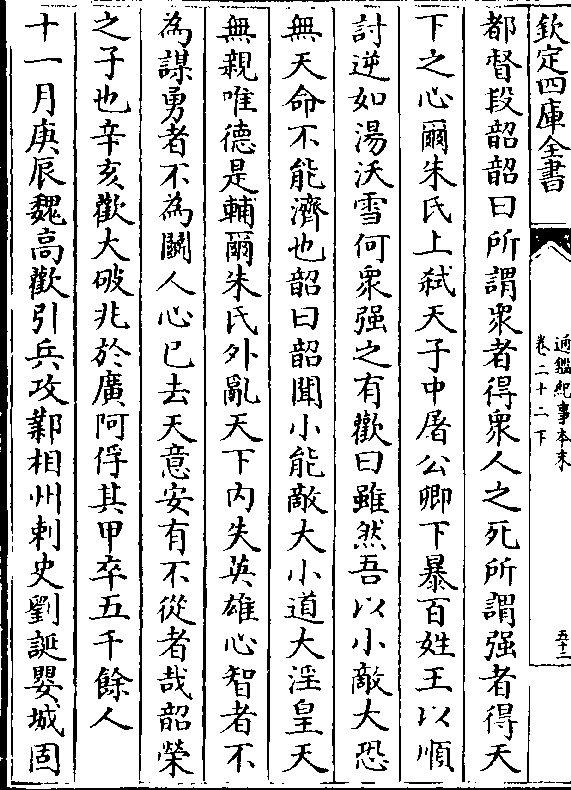 欽定四庫全書
通鑑紀事本末
卷二十二下
五十二
都督段韶韶曰所謂衆者得衆人之死所謂强者得天
下之心爾朱氏上弑天子中屠公卿下暴百姓王以順
討逆如湯沃雪何衆强之有歡曰雖然吾以小敵大恐
無天命不能濟也韶曰韶聞小能敵大小道大淫皇天
無親唯德是輔爾朱氏外亂天下内失英雄心智者不
為謀勇者不為鬭人心已去天意安有不從者哉韶榮
之子也辛亥歡大破兆於廣阿俘其甲卒五千餘人
十一月庚辰魏高歡引兵攻鄴相州刺史劉誕嬰城固